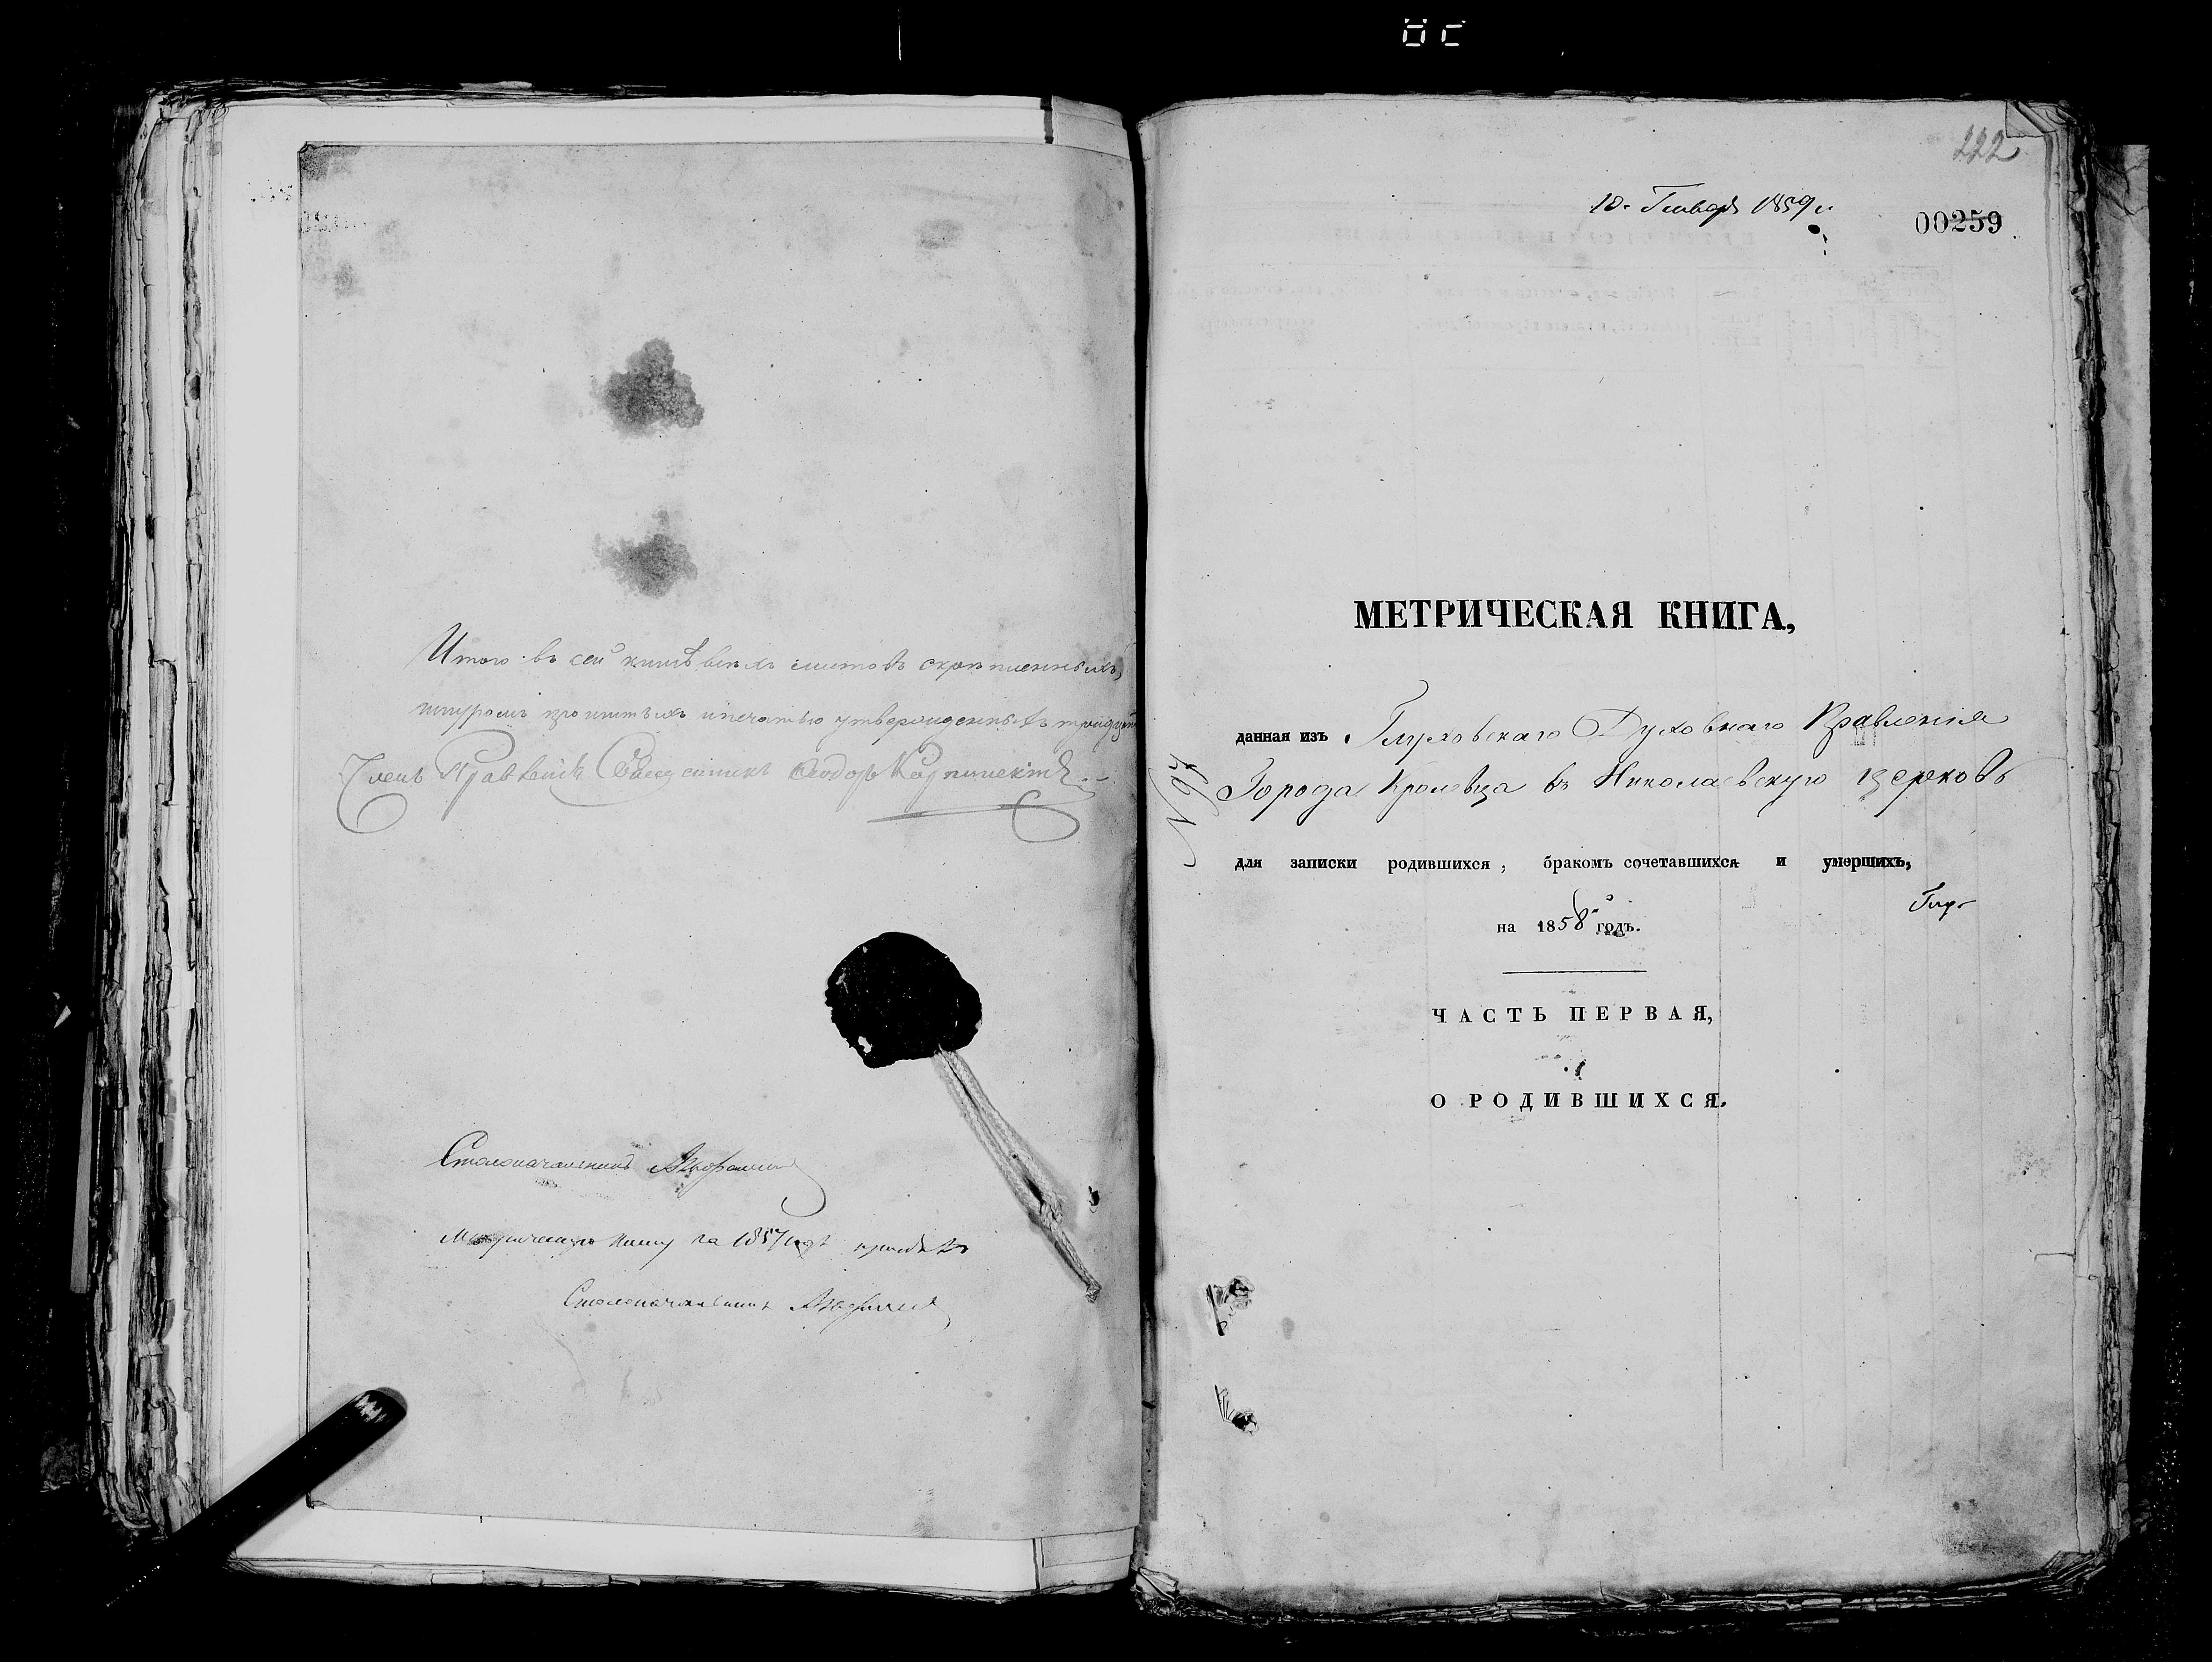 Итого въ сей книгѣ всѣхъ листовъ скрѣпленныхъ,
шнуромъ прошитыхъ и печатью утвержденныхъ
Членъ Правленія Священникъ Ѳеодоръ
Столоначальникъ
Метрическую книгу за 1857 годъ
Столоначальникъ
222
10. Генваря 1859 г.
00259
МЕТРИЧЕСКАЯ КНИГА,
данная изъ Глуховскаго Духовнаго Правленія
Города Кролевца въ Николаевскую церковь
для записки родившихся, бракомъ сочетавшихся и умершихъ,
на 1858й годъ.
ЧАСТЬ ПЕРВАЯ,
О РОДИВШИХСЯ.